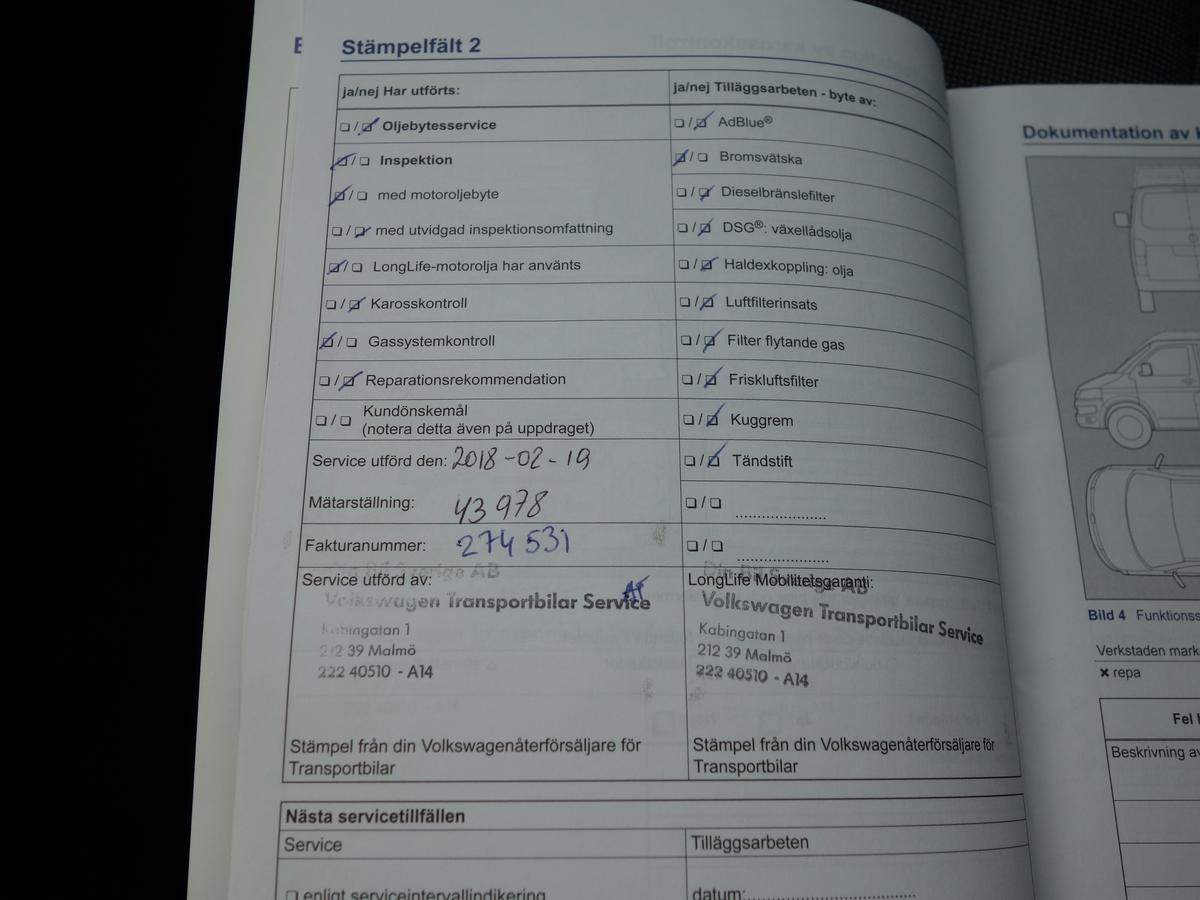 Stämpelfält 2
ja/nej Har utförts:
☐ / ☑ Oljebytesservice
☑ / ☐ Inspektion
☑ / ☐ med motoroljebyte
☐ / ☑ med utvidgad inspektionsomfattning
☑ / ☐ LongLife-motorolja har använts
☐ / ☑ Karosskontroll
☑ / ☐ Gassystemkontroll
☐ / ☑ Reparationsrekommendation
☐ / ☐ Kundönskemål
(notera detta även på uppdraget)
Service utförd den: 2018-02-19
Mätarställning: 43 978
Fakturanummer: 274 531
Service utförd av:
Volkswagen Transportbilar Service
Kabingatan 1
212 39 Malmö
222 40510 - A14
Stämpel från din Volkswagenåterförsäljare för
Transportbilar
ja/nej Tilläggsarbeten - byte av:
☐ / ☑ AdBlue®
☑ / ☐ Bromsvätska
☐ / ☑ Dieselbränslefilter
☐ / ☑ DSG®: växellådsolja
☐ / ☑ Haldexkoppling: olja
☐ / ☑ Luftfilterinsats
☐ / ☑ Filter flytande gas
☐ / ☑ Friskluftsfilter
☐ / ☑ Kuggrem
☐ / ☑ Tändstift
☐ / ☐ .....................
☐ / ☐ .....................
LongLife Mobilitetsgaranti:
Volkswagen Transportbilar Service
Kabingatan 1
212 39 Malmö
222 40510 - A14
Stämpel från din Volkswagenåterförsäljare för
Transportbilar
Nästa servicetillfällen
Service
Tilläggsarbeten
☐ enligt serviceintervallindikering
datum:
Dokumentation av
Bild 4 Funktionss
Verkstaden mark
✗ repa
Fel
Beskrivning av